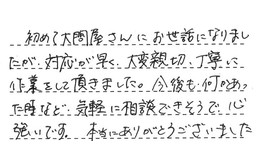 初めて大問屋さんにお世話になりまし
たが、対応が早く、大変親切、丁寧に
作業をして頂きました。今後も何かあっ
た時など、気軽に相談できそうで、心
強いです。本当にありがとうございました